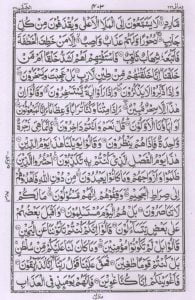 ۴۰۳
مَّارِدٍ ۝ لَا يَسَّمَّعُوْنَ اِلَى الْمَلَاِ الْاَعْلٰى وَيُقْذَفُوْنَ مِنْ كُلِّ
جَانِبٍ ۝ دُحُوْرًا وَّلَهُمْ عَذَابٌ وَّاصِبٌ ۝ اِلَّا مَنْ خَطِفَ الْخَطْفَةَ
فَاَتْبَعَهٗ شِهَابٌ ثَاقِبٌ ۝ فَاسْتَفْتِهِمْ اَهُمْ اَشَدُّ
خَلْقًا اَمْ مَّنْ خَلَقْنَا اِنَّا خَلَقْنٰهُمْ مِّنْ طِيْنٍ لَّازِبٍ ۝ بَلْ عَجِبْتَ
وَيَسْخَرُوْنَ ۝ وَاِذَا ذُكِّرُوْا لَا يَذْكُرُوْنَ ۝ وَاِذَا رَاَوْا اٰيَةً يَّسْتَسْخِرُوْنَ ۝ وَقَالُوْٓا
اِنْ هٰذَآ اِلَّا سِحْرٌ مُّبِيْنٌ ۝ ءَاِذَا مِتْنَا وَكُنَّا تُرَابًا وَّعِظَامًا ءَاِنَّا لَمَبْعُوْثُوْنَ ۝
اَوَاٰبَآؤُنَا الْاَوَّلُوْنَ ۝ قُلْ نَعَمْ وَاَنْتُمْ دَاخِرُوْنَ ۝ فَاِنَّمَا هِيَ زَجْرَةٌ
وَّاحِدَةٌ فَاِذَا هُمْ يَنْظُرُوْنَ ۝ وَقَالُوْا يٰوَيْلَنَا هٰذَا يَوْمُ الدِّيْنِ ۝
هٰذَا يَوْمُ الْفَصْلِ الَّذِيْ كُنْتُمْ بِهٖ تُكَذِّبُوْنَ ۝ اُحْشُرُوا الَّذِيْنَ
ظَلَمُوْا وَاَزْوَاجَهُمْ وَمَا كَانُوْا يَعْبُدُوْنَ ۝ مِنْ دُوْنِ اللّٰهِ فَاهْدُوْهُمْ
اِلٰى صِرَاطِ الْجَحِيْمِ ۝ وَقِفُوْهُمْ اِنَّهُمْ مَّسْـُٔوْلُوْنَ ۝ مَا لَكُمْ
لَا تَنَاصَرُوْنَ ۝ بَلْ هُمُ الْيَوْمَ مُسْتَسْلِمُوْنَ ۝ وَاَقْبَلَ بَعْضُهُمْ
عَلٰى بَعْضٍ يَّتَسَآءَلُوْنَ ۝ قَالُوْٓا اِنَّكُمْ كُنْتُمْ تَاْتُوْنَنَا عَنِ الْيَمِيْنِ ۝
قَالُوْا بَلْ لَّمْ تَكُوْنُوْا مُؤْمِنِيْنَ ۝ وَمَا كَانَ لَنَا عَلَيْكُمْ مِّنْ سُلْطٰنٍ
بَلْ كُنْتُمْ قَوْمًا طٰغِيْنَ ۝ فَحَقَّ عَلَيْنَا قَوْلُ رَبِّنَآ اِنَّا لَذَآئِقُوْنَ ۝
فَاَغْوَيْنٰكُمْ اِنَّا كُنَّا غٰوِيْنَ ۝ فَاِنَّهُمْ يَوْمَئِذٍ فِي الْعَذَابِ